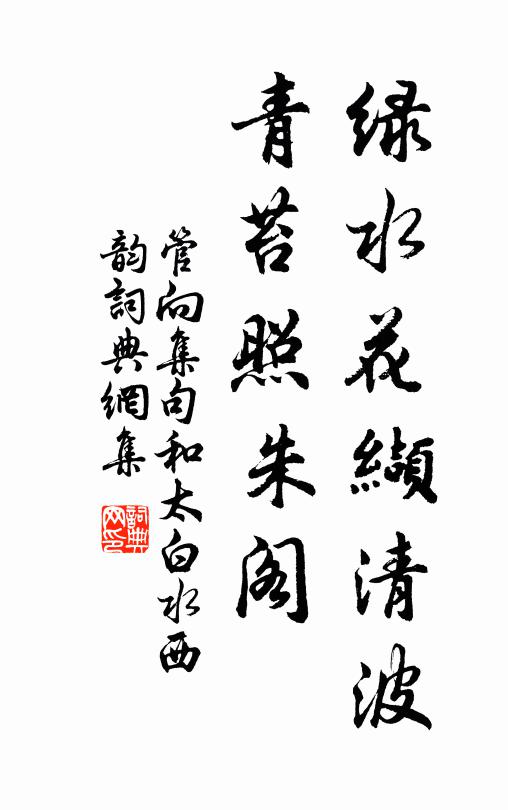 绿水花纈清波
青苔照朱阁
管向集句和太白水西
韵詞典網集
詞典网印